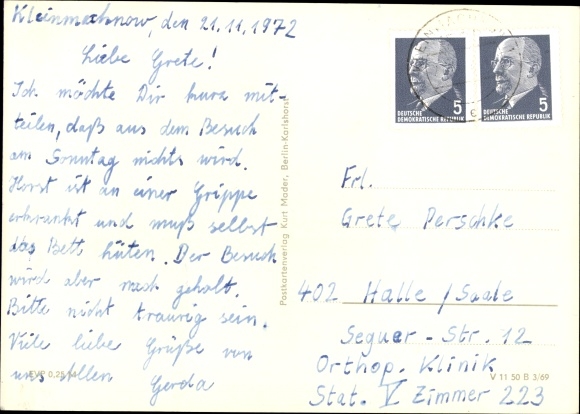 Kleinmachnow, den 21.11.1972
Liebe Grete!
Ich möchte Dir kurz mit-
teilen, daß aus dem Besuch
am Sonntag nichts wird.
Horst ist an einer Grippe
erkrankt und muß selbst
das Bett hüten. Der Besuch
wird aber nach geholt.
Bitte nicht traurig sein.
Viele liebe Grüße von
uns allen Gerda
EVP 0,25
Postkartenverlag Kurt Mader, Berlin-Karlshorst
5
DEUTSCHE
DEMOKRATISCHE REPUBLIK
5
DEUTSCHE
DEMOKRATISCHE REPUBLIK
Frl.
Grete Perschke
402 Halle / Saale
Seguer-Str. 12
Orthop. Klinik
Stat. V Zimmer 223
V 11 50 B 3/69